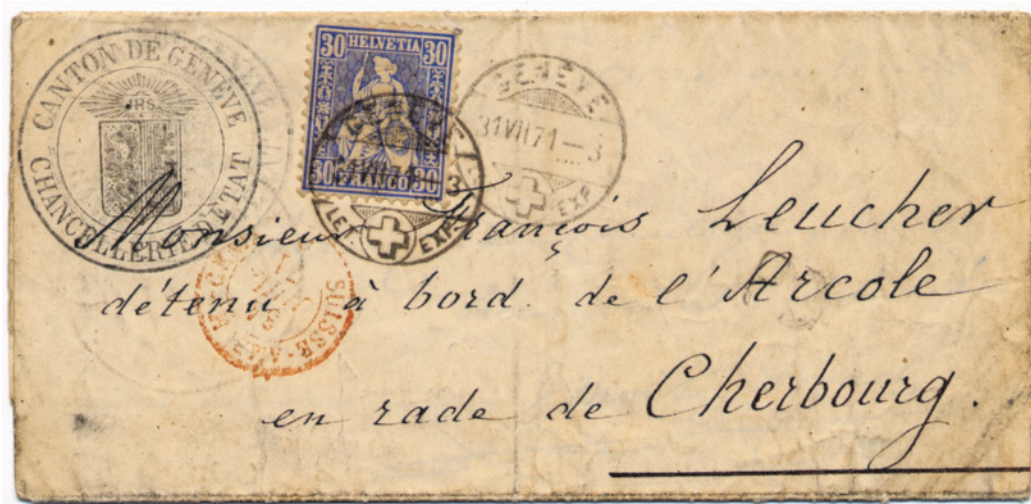 CANTON DE GENEVE
CHANCELLERIE D'ETAT
JHS
30 HELVETIA 30
30 FRANCO 30
GENEVE
31 VII 71 - 3
EXP.
GENEVE
VII 71 3
LET. EXP.
SUISSE
Monsieur François Leucher
détenu à bord de l'Arcole
en rade de Cherbourg.